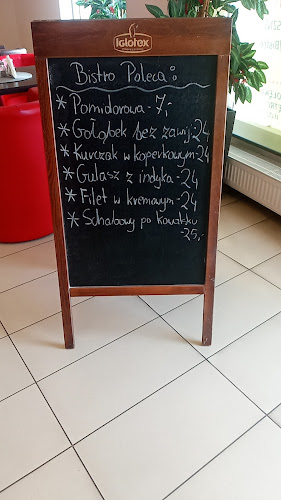 Iglotex
Bistro Poleca:
* Pomidorowa - 7,-
* Gołąbek bez zawij. 24
* Kurczak w koperkowym - 24
* Gulasz z indyka - 24
* Filet w kremowym - 24
* Schabowy po kowalsku
- 25,-